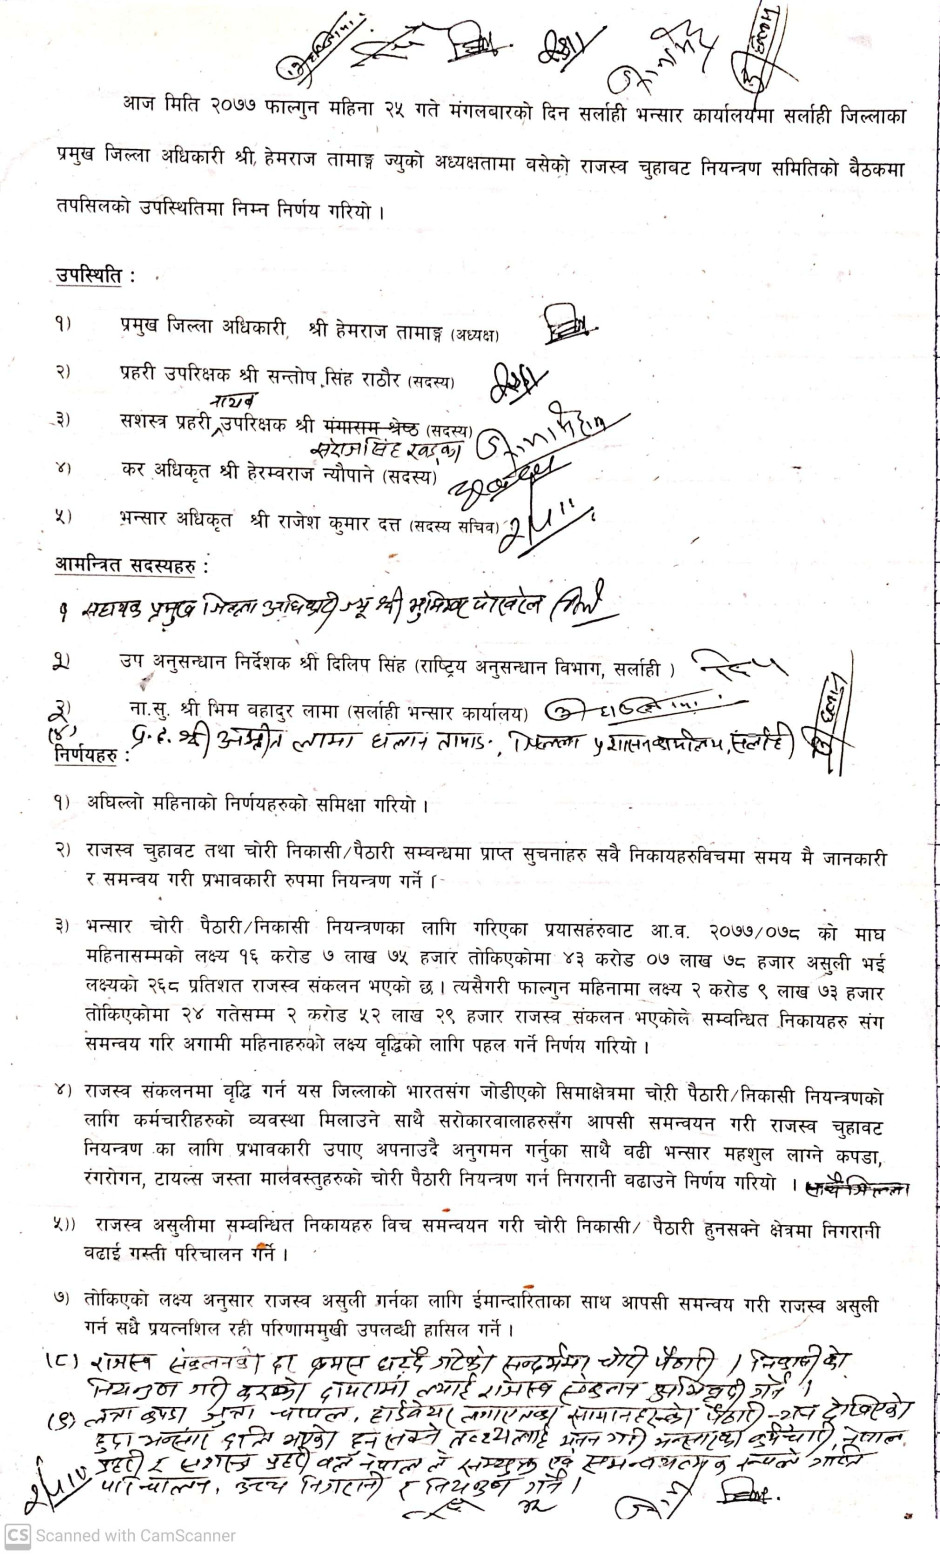 आज मिति २०७७ फाल्गुन महिना २५ गते मंगलबारको दिन सर्लाही भन्सार कार्यालयमा सर्लाही जिल्लाका
प्रमुख जिल्ला अधिकारी श्री हेमराज तामाङ्ग ज्युको अध्यक्षतामा वसेको राजस्व चुहावट नियन्त्रण समितिको बैठकमा
तपसिलको उपस्थितिमा निम्न निर्णय गरियो ।
उपस्थिति :
१) प्रमुख जिल्ला अधिकारी, श्री हेमराज तामाङ्ग (अध्यक्ष)
२) प्रहरी उपरिक्षक श्री सन्तोष सिंह राठौर (सदस्य)
नायव
३) सशस्त्र प्रहरी उपरिक्षक श्री गंगाराम श्रेष्ठ (सदस्य)
सिंह खड्का
४) कर अधिकृत श्री हेरम्वराज न्यौपाने (सदस्य)
५) भन्सार अधिकृत श्री राजेश कुमार दत्त (सदस्य सचिव)
आमन्त्रित सदस्यहरु :
१ सहायक प्रमुख जिल्ला अधिकारी ज्यू श्री पोखरेल
२) उप अनुसन्धान निर्देशक श्री दिलिप सिंह (राष्ट्रिय अनुसन्धान विभाग, सर्लाही )
३) ना.सु. श्री भिम वहादुर लामा (सर्लाही भन्सार कार्यालय)
(४) प्र.ह. श्री लामा तामाङ, जिल्ला प्रशासन कार्यालय, सर्लाही
निर्णयहरु :
१) अघिल्लो महिनाको निर्णयहरुको समिक्षा गरियो ।
२) राजस्व चुहावट तथा चोरी निकासी/पैठारी सम्वन्धमा प्राप्त सुचनाहरु सवै निकायहरुविचमा समय मै जानकारी
र समन्वय गरी प्रभावकारी रुपमा नियन्त्रण गर्ने ।
३) भन्सार चोरी पैठारी/निकासी नियन्त्रणका लागि गरिएका प्रयासहरुवाट आ.व. २०७७/०७८ को माघ
महिनासम्मको लक्ष्य १६ करोड ७ लाख ७५ हजार तोकिएकोमा ४३ करोड ०७ लाख ७८ हजार असुली भई
लक्ष्यको २६८ प्रतिशत राजस्व संकलन भएको छ । त्यसैगरी फाल्गुन महिनामा लक्ष्य २ करोड ९ लाख ७३ हजार
तोकिएकोमा २४ गतेसम्म २ करोड ५२ लाख २९ हजार राजस्व संकलन भएकोले सम्वन्धित निकायहरु संग
समन्वय गरि अगामी महिनाहरुको लक्ष्य वृद्धिको लागि पहल गर्ने निर्णय गरियो ।
४) राजस्व संकलनमा वृद्धि गर्न यस जिल्लाको भारतसंग जोडीएको सिमाक्षेत्रमा चोरी पैठारी/निकासी नियन्त्रणको
लागि कर्मचारीहरुको व्यवस्था मिलाउने साथै सरोकारवालाहरुसँग आपसी समन्वयन गरी राजस्व चुहावट
नियन्त्रण का लागि प्रभावकारी उपाए अपनाउदै अनुगमन गर्नुका साथै बढी भन्सार महशुल लाग्ने कपडा,
रंगरोगन, टायल्स जस्ता मालवस्तुहरुको चोरी पैठारी नियन्त्रण गर्न निगरानी वढाउने निर्णय गरियो ।
५)) राजस्व असुलीमा सम्वन्धित निकायहरु विच समन्वयन गरी चोरी निकासी/ पैठारी हुनसक्ने क्षेत्रमा निगरानी
वढाई गस्ती परिचालन गर्ने ।
७) तोकिएको लक्ष्य अनुसार राजस्व असुली गर्नका लागि ईमान्दारिताका साथ आपसी समन्वय गरी राजस्व असुली
गर्न सधै प्रयत्नशिल रही परिणाममुखी उपलव्धी हासिल गर्ने ।
(८) राजस्व संकलनको दर क्रमस घट्दै गएको सन्दर्भमा चोरी पैठारी / निकासीको
नियन्त्रण गरी करको दायरामा ल्याई राजस्व संकलन अभिवृद्धी गर्ने ।
(९) लत्ता कपडा जुत्ता चप्पल, हार्डवेयर लगाएतका सामानहरुको पैठारी देखिएको
हुदा भन्सार भएको हुन सक्ने तथ्यलाई मनन गरी भन्सारका कर्मचारी, नेपाल
प्रहरी र सशस्त्र प्रहरी वल नेपाल ले संयुक्त एवं समन्वयात्मक रुपले गस्ति
परिचालन, उच्च निगरानी र नियन्त्रण गर्ने ।
CS Scanned with CamScanner